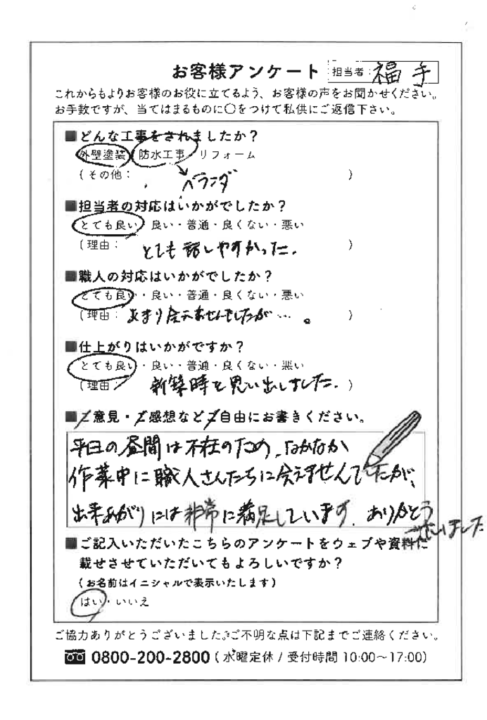 お客様アンケート 担当者: 福手
これからもよりお客様のお役に立てるよう、お客様の声をお聞かせください。
お手数ですが、当てはまるものに〇をつけて私供にご返信下さい。
■どんな工事をされましたか？
外壁塗装・防水工事・リフォーム
(その他: ベランダ )
■担当者の対応はいかがでしたか？
とても良い・良い・普通・良くない・悪い
(理由: とても話しやすかった. )
■職人の対応はいかがでしたか？
とても良い・良い・普通・良くない・悪い
(理由: あまり会えませんでしたが…。 )
■仕上がりはいかがですか？
とても良い・良い・普通・良くない・悪い
(理由: 新築時を思い出しました. )
■ご意見・ご感想などご自由にお書きください。
平日の昼間は不在のため、なかなか
作業中に職人さんたちに会えませんでしたが、
出来あがりには非常に満足しています. ありがとう
ございました
■ご記入いただいたこちらのアンケートをウェブや資料に
載せさせていただいてもよろしいですか？
(お名前はイニシャルで表示いたします)
はい・いいえ
ご協力ありがとうございました。ご不明な点は下記までご連絡ください。
0800-200-2800 (水曜定休 / 受付時間 10:00～17:00)